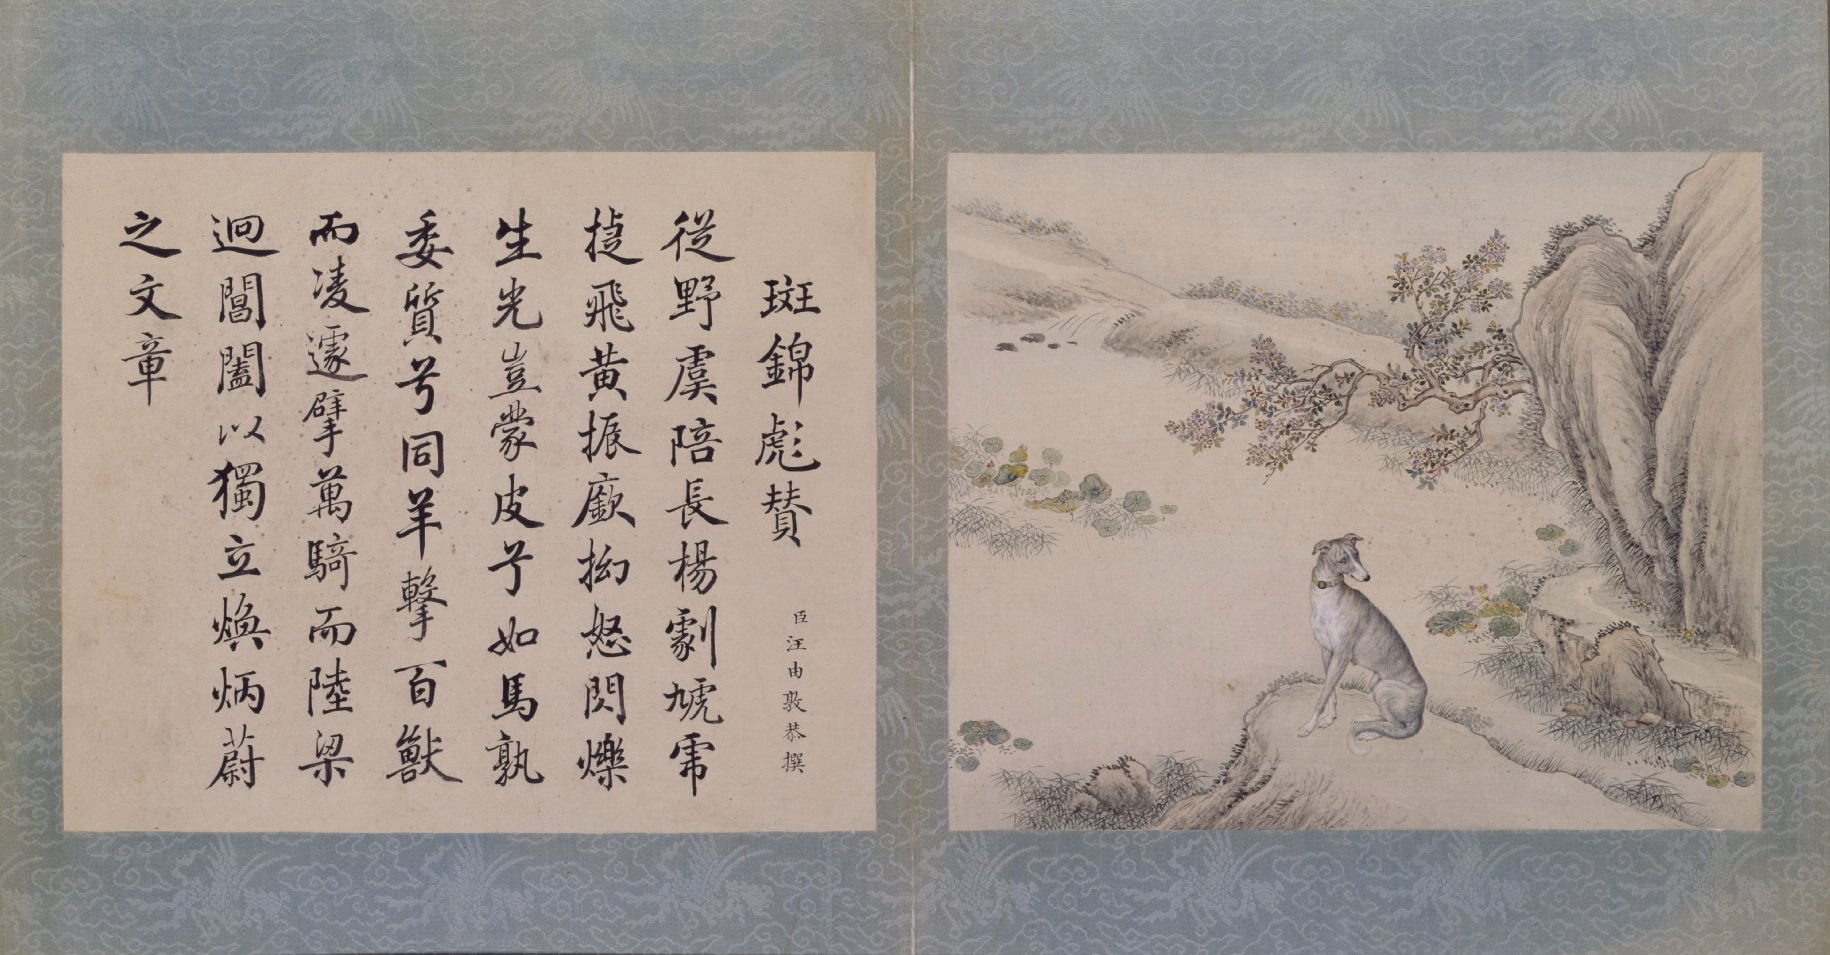 斑錦彪贊
臣汪由敦恭撰
從野虞陪長楊劇虓虎
㨗飛黃振厫拗怒閃爍
生光豈蒙皮兮如馬孰
委質兮同羊擊百獸
而凌遽擘萬騎而陸梁
迴閶闔以獨立煥炳蔚
之文章